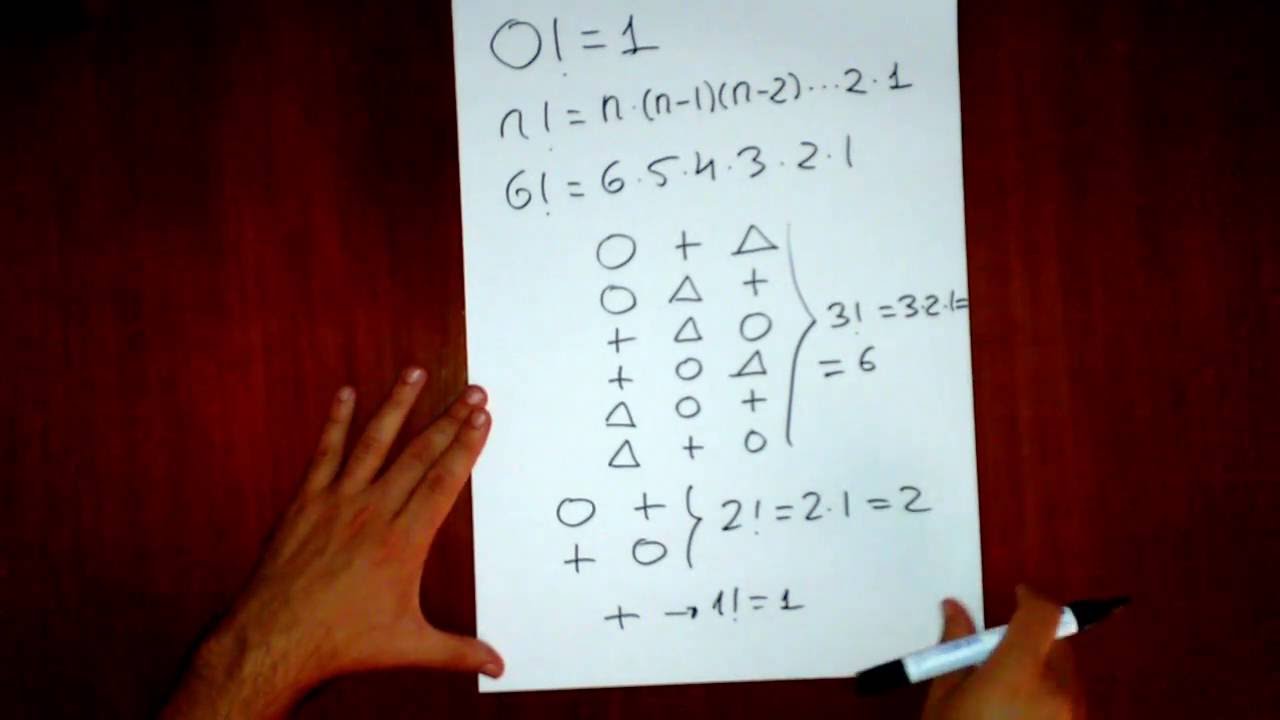 0! = 1
n! = n·(n-1)(n-2)...2·1
6! = 6·5·4·3·2·1
○ + △
○ △ +
+ △ ○
+ ○ △
△ ○ +
△ + ○
3! = 3·2·1=
= 6
○ +
+ ○
2! = 2·1 = 2
+ → 1! = 1